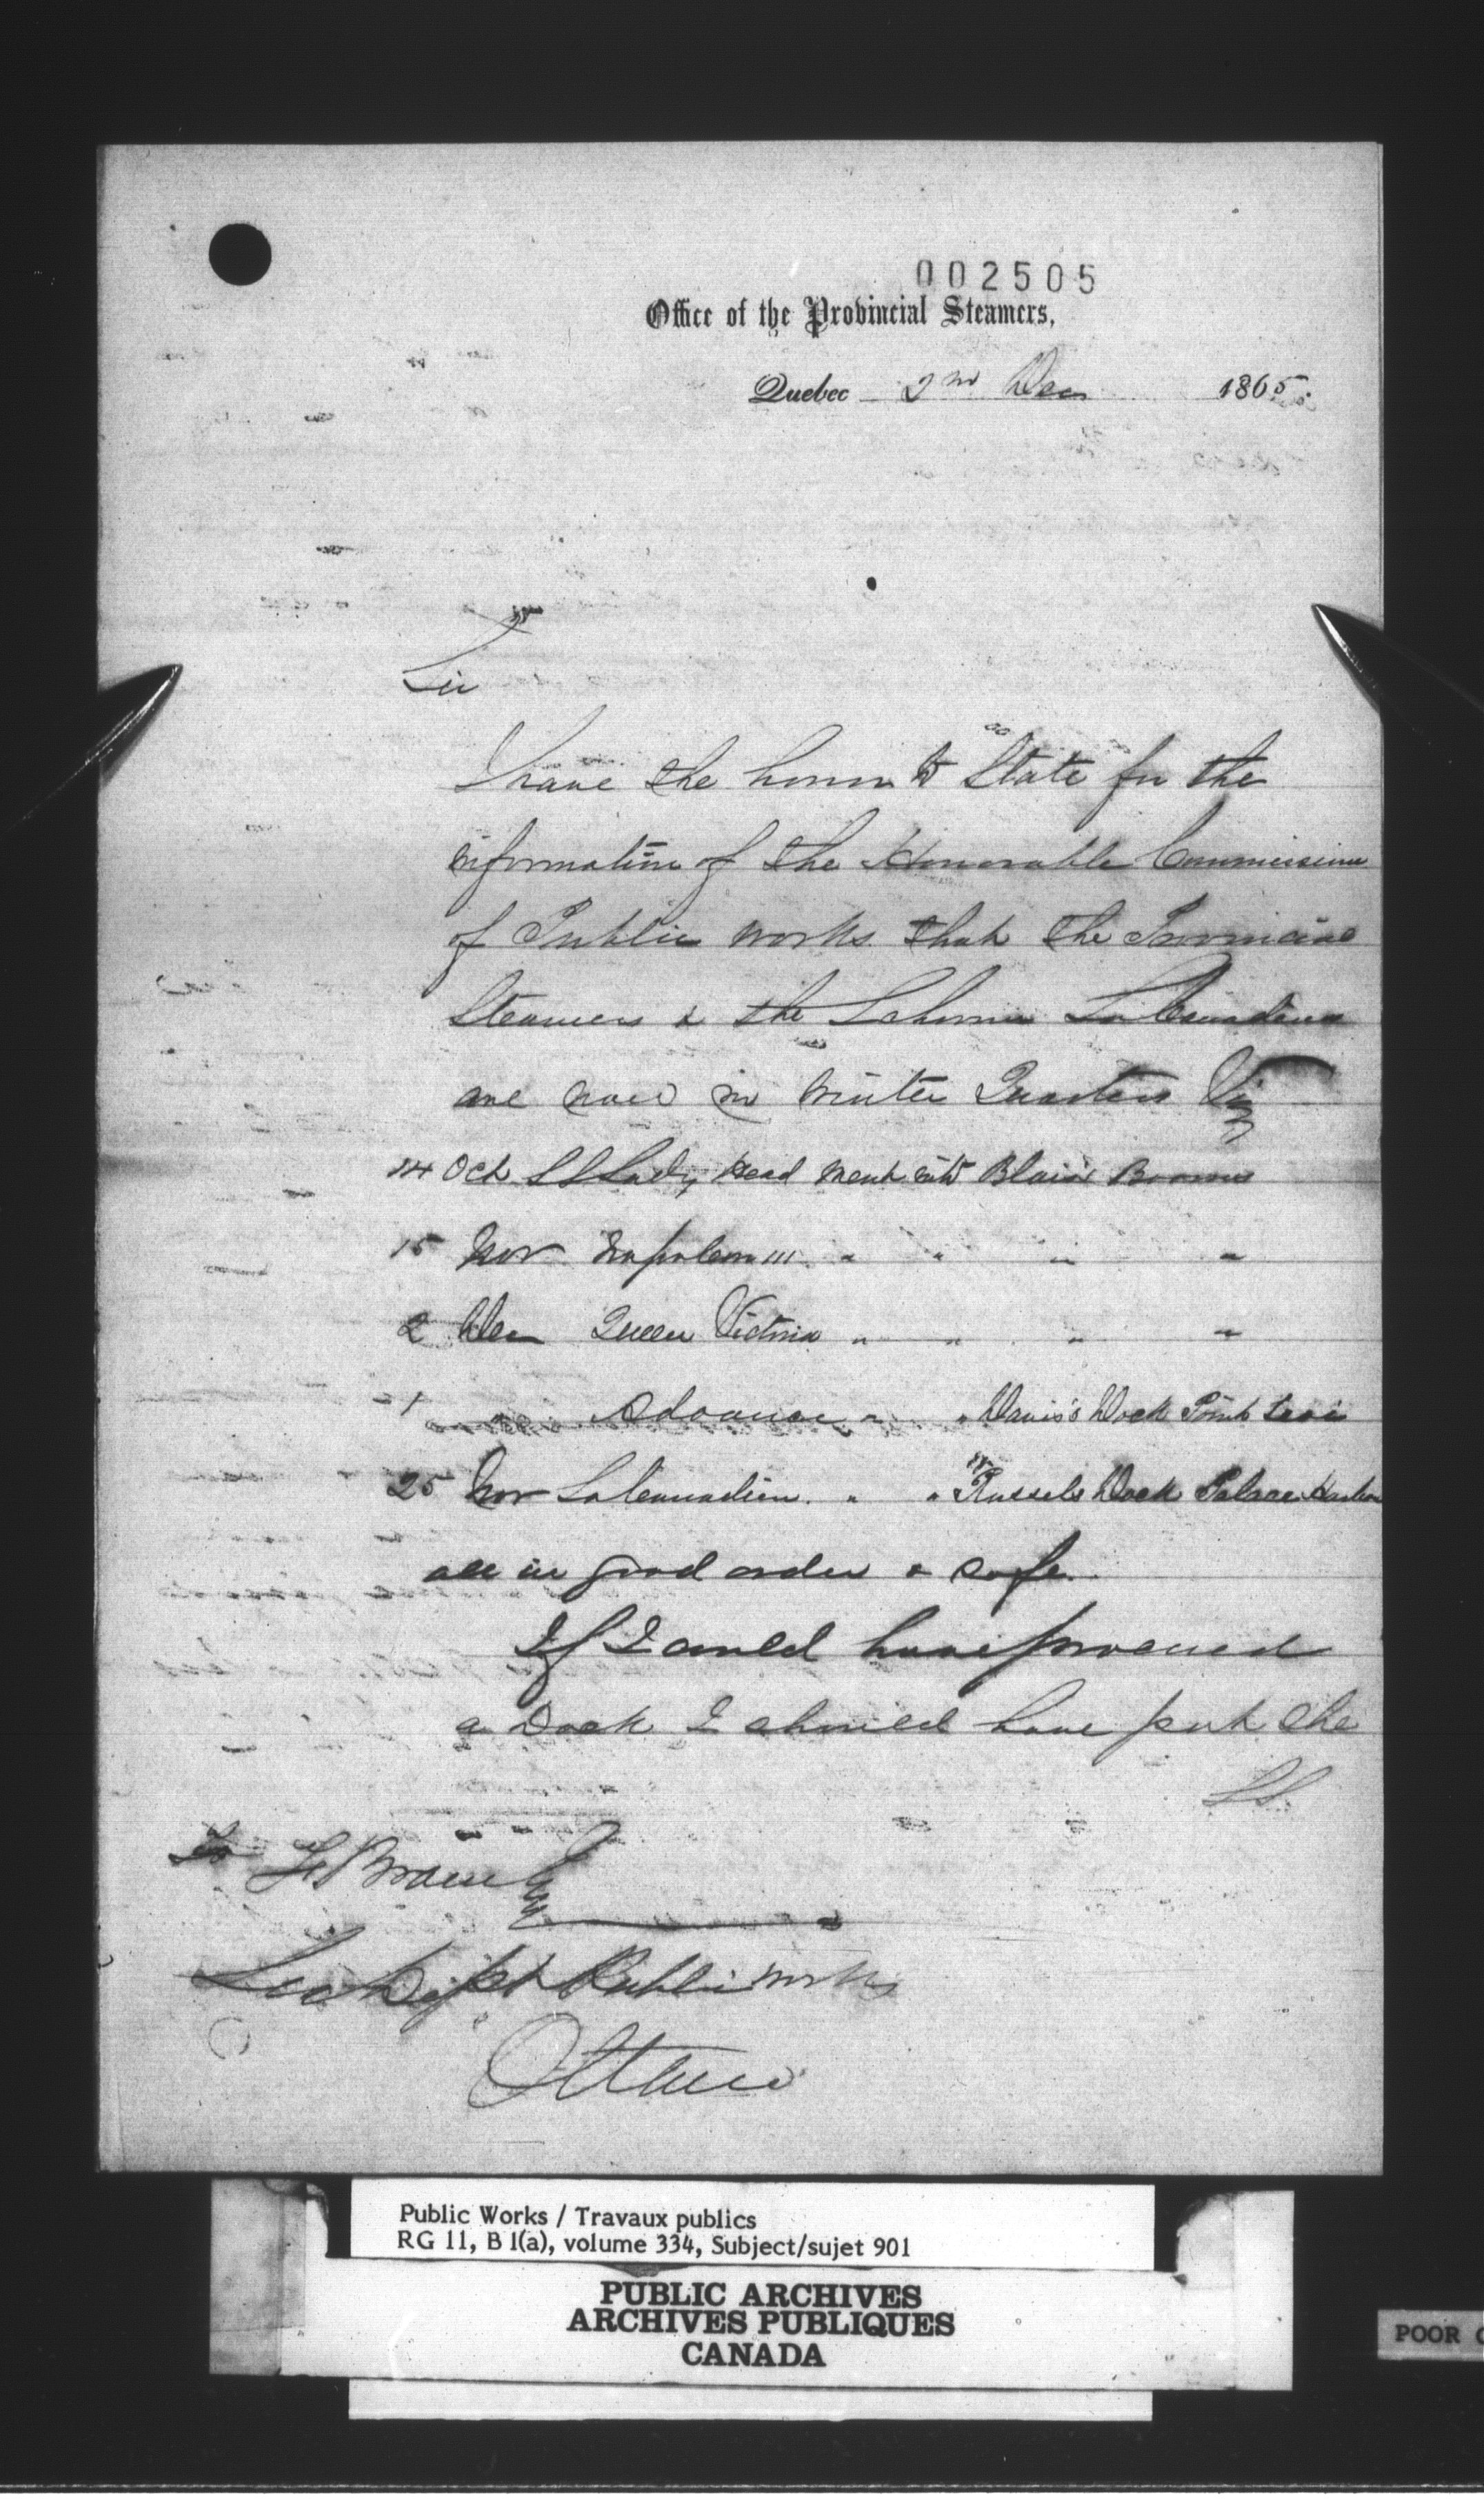 002505
Office of the Provincial Steamers,
Quebec 2nd Dec 1865.
Sir
I have the honor to State for the
information of the Honorable Commissioner
of Public Works that the Provincial
Steamers & the Schooner La Canadienne
are now in Winter Quarters Viz
14 Oct SS Lady Head went into Blais's Booms
15 Nov Napoleon III " " " "
2 Dec Queen Victoria " " " "
1 " Advance " " Davis's Dock Point Levi
25 Nov La Canadien. " " Russels Dock Palace Harbor
all in good order & safe.
If I could have procured
a Dock I should have put the
SS
To F Braun Esq
Sec Dept Public Works
Ottawa
Public Works / Travaux publics
RG 11, B 1(a), volume 334, Subject/sujet 901
PUBLIC ARCHIVES
ARCHIVES PUBLIQUES
CANADA
POOR